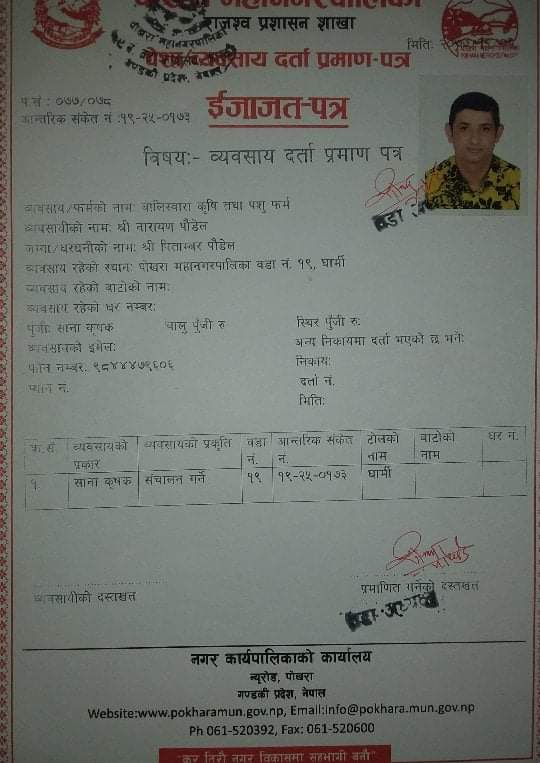 महानगरपालिका
राजश्व प्रशासन शाखा
पेशा/व्यवसाय दर्ता प्रमाण-पत्र
मिति:
प.सं : ०७७/०७८
आन्तरिक संकेत नं :१९-२५-०१७३
ईजाजत-पत्र
विषय:- व्यवसाय दर्ता प्रमाण पत्र
व्यवसाय/फर्मको नाम: कृषि तथा पशु फर्म
व्यवसायीको नाम: श्री नारायण पौडेल
जग्गा/घरधनीको नाम: श्री पिताम्बर पौडेल
व्यवसाय रहेको स्थान: पोखरा महानगरपालिका वडा नं. १९, घार्मी
व्यवसाय रहेको बाटोको नाम:
व्यवसाय रहेको घर नम्बर:
पुँजी: साना कृषक चालु पुँजी रु स्थिर पुँजी रु:
व्यवसायको इमेल: अन्य निकायमा दर्ता भएको छ भने:
फोन नम्बर: ९८४४४७९६०६ निकाय:
प्यान नं. दर्ता नं.
मिति:
क्र.सं. व्यवसायको प्रकार व्यवसायको प्रकृति वडा नं. आन्तरिक संकेत नं. टोलको नाम बाटोको नाम घर नं.
१ साना कृषक संचालन गर्ने १९ १९-२५-०१७३ घार्मी
व्यवसायीको दस्तखत प्रमाणित गर्नेको दस्तखत
वडा अध्यक्ष
नगर कार्यपालिकाको कार्यालय
न्यूरोड, पोखरा
गण्डकी प्रदेश, नेपाल
Website:www.pokharamun.gov.np, Email:info@pokhara.mun.gov.np
Ph 061-520392, Fax: 061-520600
"कर तिरौ नगर विकासमा सहभागी बनौ"